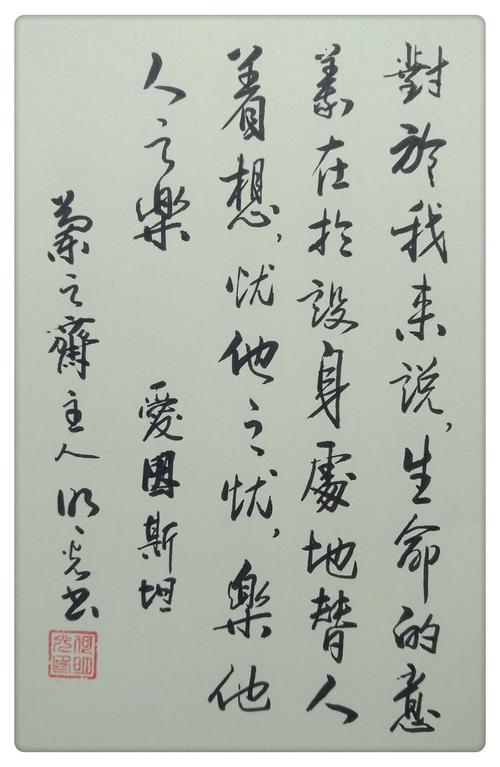 對於我来説，生命的意
義在於設身處地替人
着想，忧他之忧，樂他
人之樂 愛因斯坦
蘭之齋主人明光书
何明光印